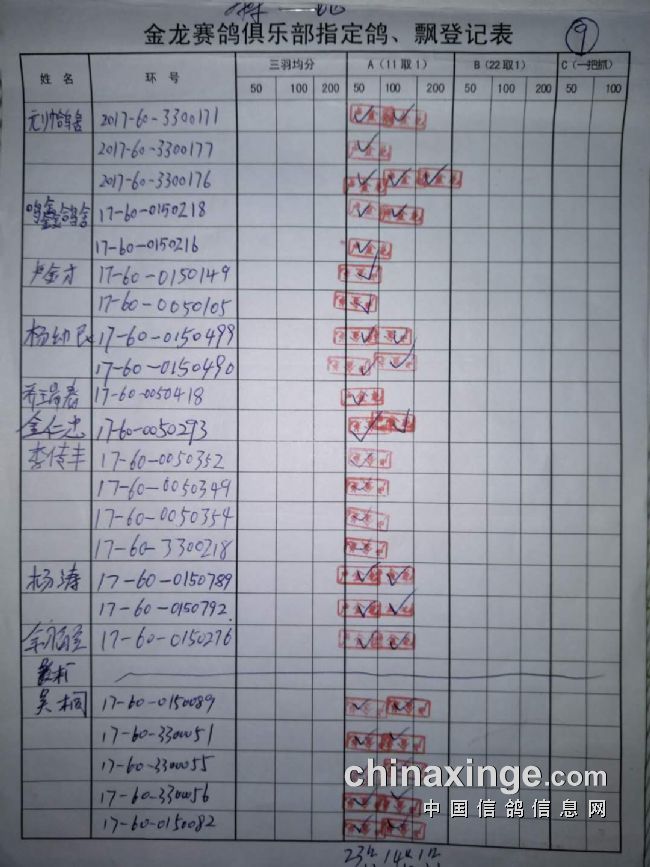 金龙赛鸽俱乐部指定鸽、飘登记表
9
姓名 环号 三羽均分 A(11取1) B(22取1) C(一把抓)
50 100 200 50 100 200 50 100 200 50 100
2017-60-3300171
2017-60-3300177
2017-60-3300176
鸣鑫鸽舍 17-60-0150218
17-60-0150216
卢金才 17-60-0150149
17-60-0050105
杨幼民 17-60-0150499
17-60-0150490
17-60-0050418
金仁忠 17-60-0050293
李传丰 17-60-0050352
17-60-0050349
17-60-0050354
17-60-3300218
杨涛 17-60-0150789
17-60-0150792
17-60-0150276
吴桐 17-60-0150089
17-60-3300051
17-60-3300055
17-60-3300056
17-60-0150082
chinaxinge.com
中国信鸽信息网